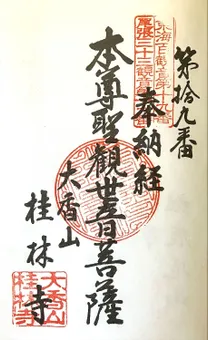 第拾九番
東海百観音第十九番
尾張三十三観音
奉納経
本尊聖観世音菩薩
大香山
桂林寺
大香山
桂林寺